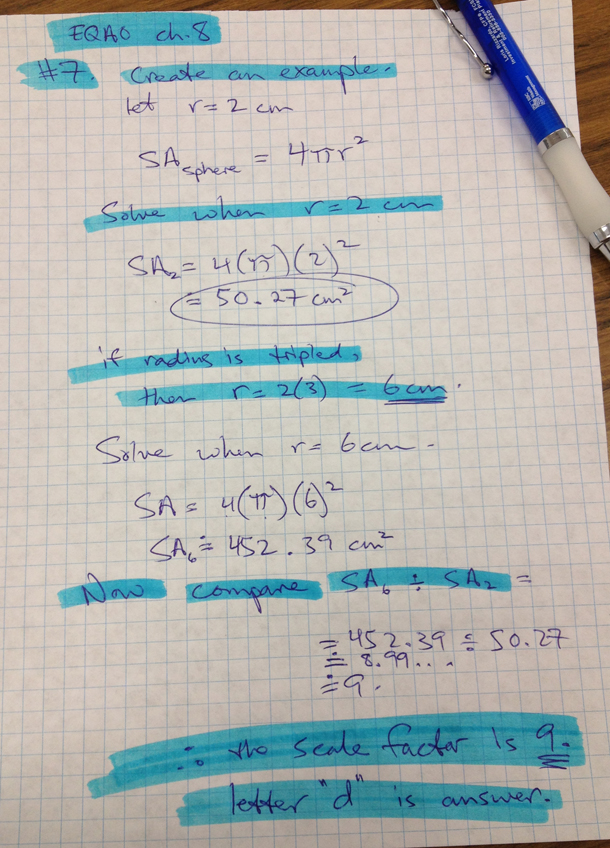 EQAO ch. 8
#7. Create an example.
let r = 2 cm
SA sphere = 4πr²
Solve when r = 2 cm
SA₂ = 4(π)(2)²
≐ 50.27 cm²
if radius is tripled,
then r = 2(3) = 6 cm.
Solve when r = 6 cm.
SA = 4(π)(6)²
SA₆ ≐ 452.39 cm²
Now compare SA₆ ÷ SA₂ =
≐ 452.39 ÷ 50.27
≐ 8.99...
≐ 9.
∴ the scale factor is 9.
letter "d" is answer.